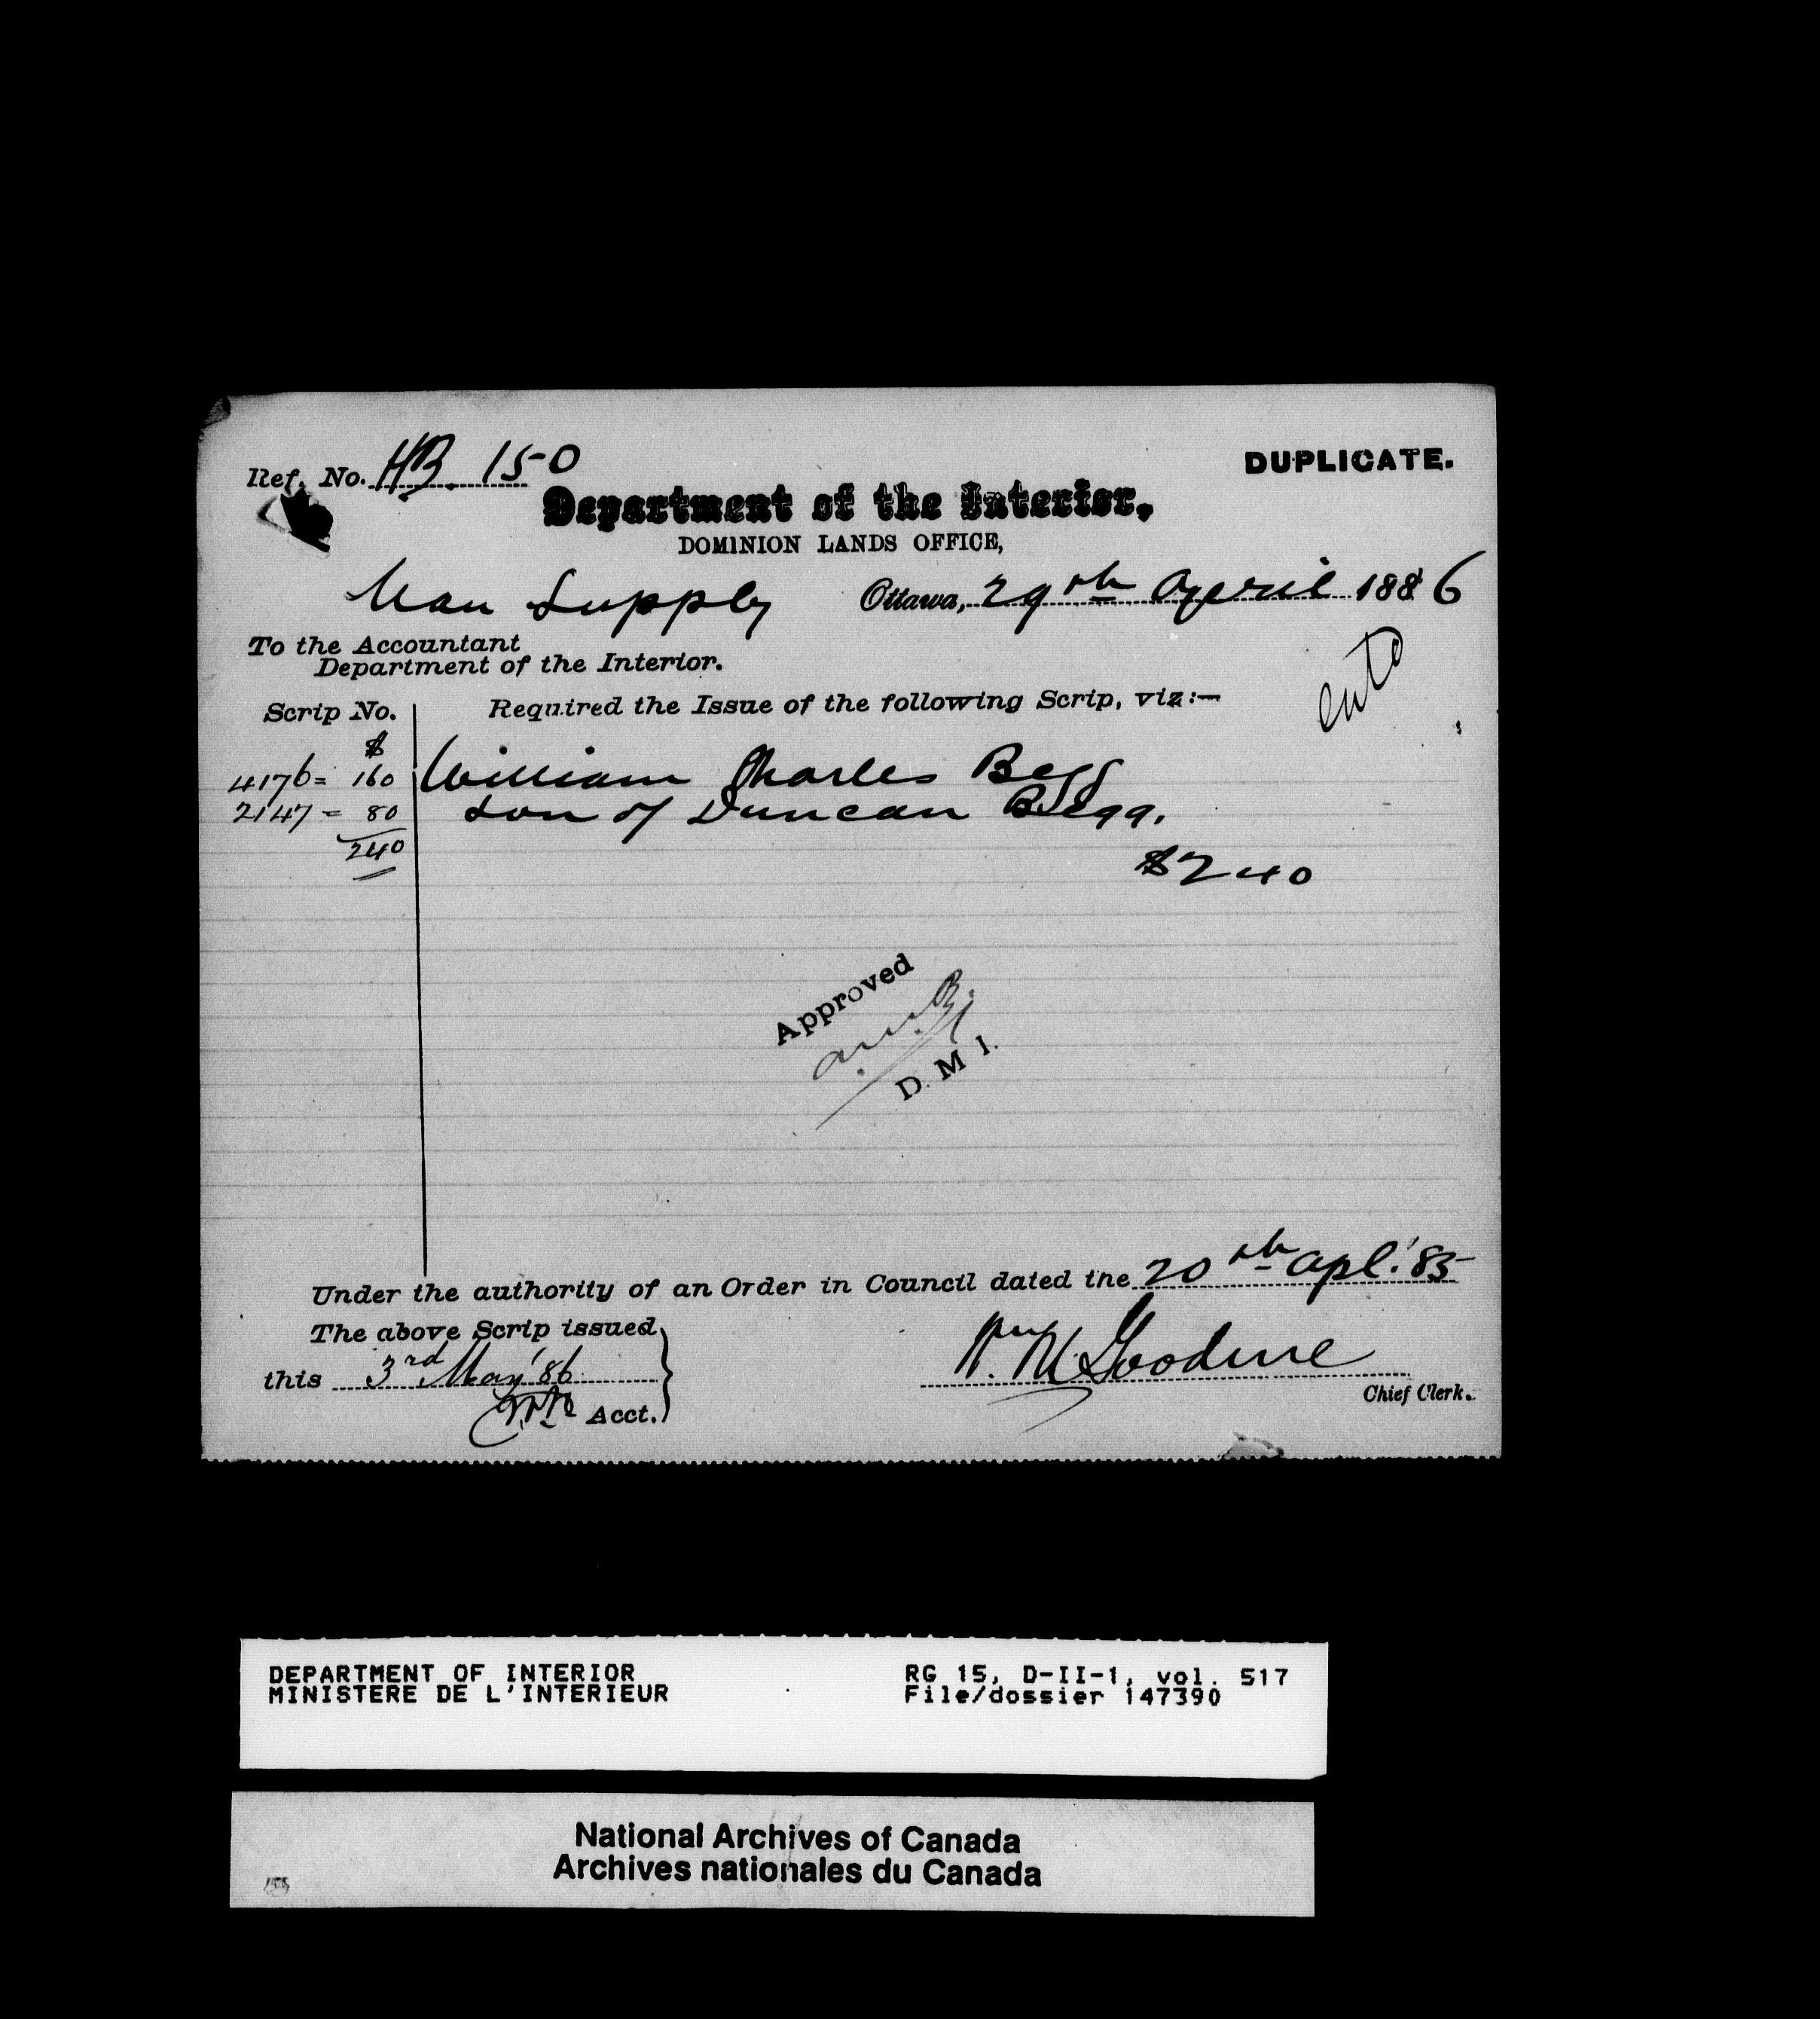 Ref. No. HB. 150
DUPLICATE.
Department of the Interior,
DOMINION LANDS OFFICE,
Man Supply Ottawa, 29th April 1886
To the Accountant
Department of the Interior.
ent'd
Scrip No. Required the Issue of the following Scrip, viz:—
$
4176 = 160 William Charles Begg
2147 = 80 son of Duncan Begg.
240
$240
Approved
D. M. I.
Under the authority of an Order in Council dated the 20th Apl. '85
The above Scrip issued
this 3rd May '86
Acct.
Wm M Goodeve
Chief Clerk.
DEPARTMENT OF INTERIOR
MINISTERE DE L'INTERIEUR
RG 15, D-II-1, vol. 517
File/dossier 147390
National Archives of Canada
Archives nationales du Canada